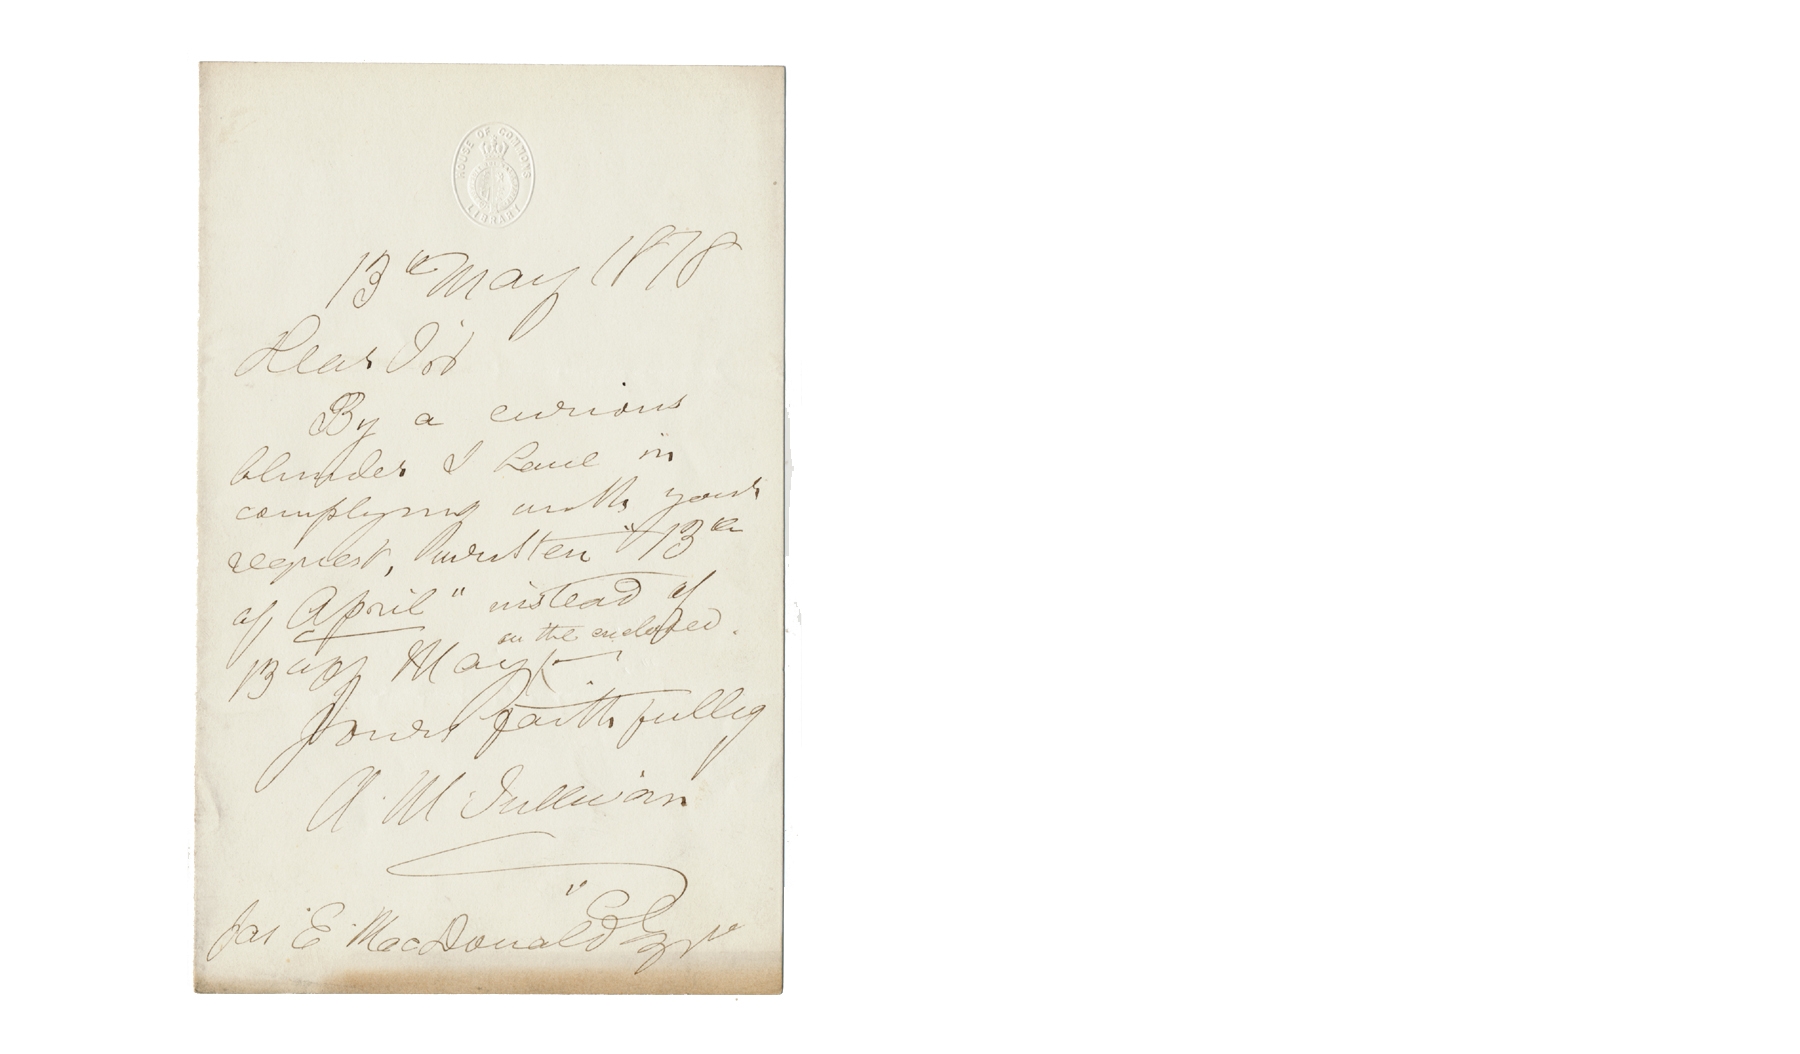 HOUSE OF COMMONS
LIBRARY
13th May 1878
Dear Sir
By a curious
blunder I have in
complying with your
request, written "13th
of April" instead of
on the enclosed.
13th of May
Yours faithfully
A. M. Sullivan
Jas E. MacDonald Esqre